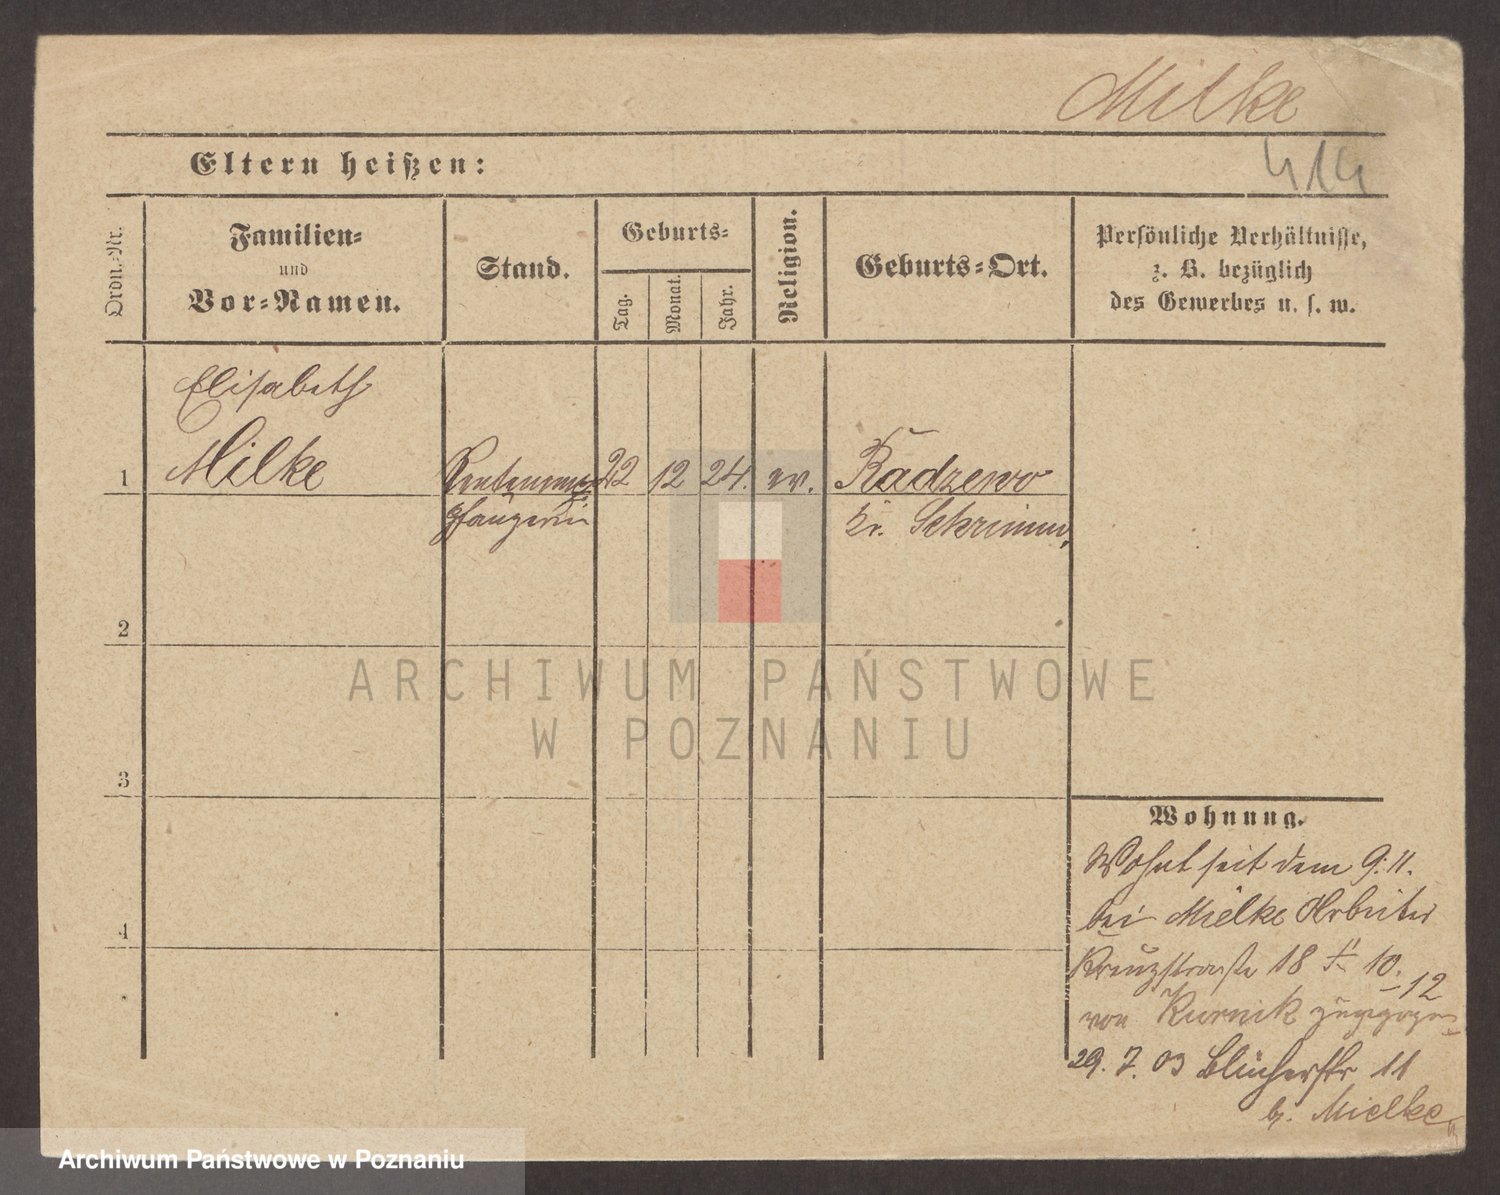 Milke
414
Eltern heißen:
Ordn.-Nr.
Familien-
und
Vor-Namen.
Stand.
Geburts-
Tag.
Monat.
Jahr.
Religion.
Geburts-Ort.
Persönliche Verhältnisse,
z. B. bezüglich
des Gewerbes u. s. w.
Elisabeth
1 Milke Rentenem- 22 12 24. ev. Radzewo
pfängerin Kr. Schrimm,
2
3
4
ARCHIWUM PAŃSTWOWE
W POZNANIU
Wohnung.
Wohnt seit dem 9.11.
bei Mielke Arbeiter
Kreuzstraße 18 10.
-12
von Kurnik zugezogen
29. 7. 03 Blücherstr 11
b. Mielke
Archiwum Państwowe w Poznaniu